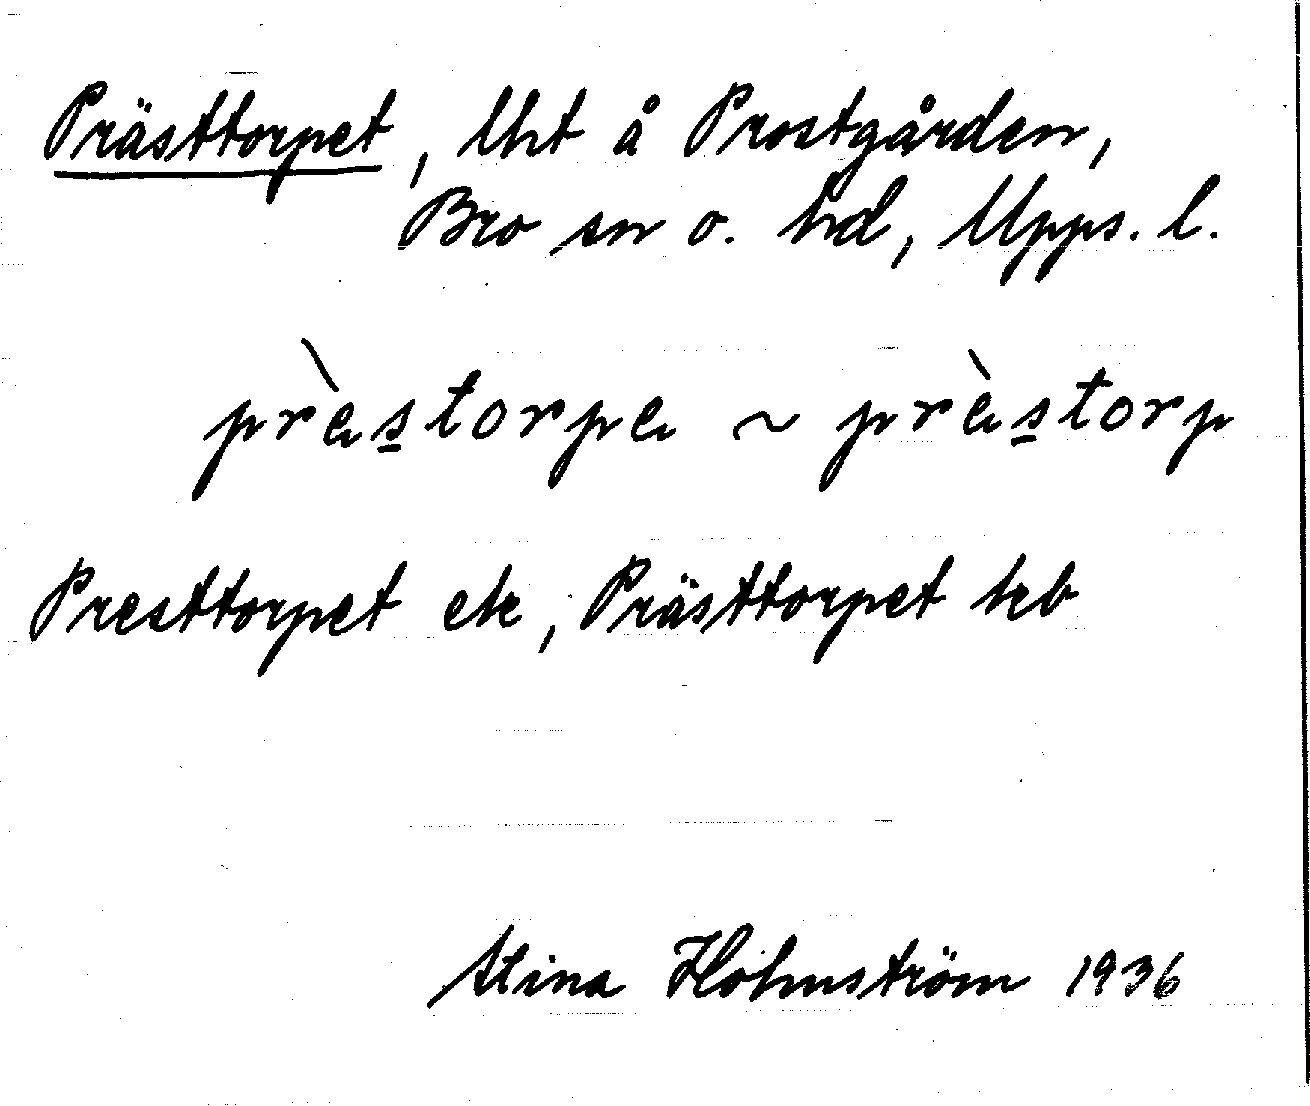 Prästtorpet, lht å Prostgården,
Bro sn o. hd, Upps. l.
prèstorpe ~ prèstorp
Presttorpet ek, Prästtorpet
Stina Holmström 1936